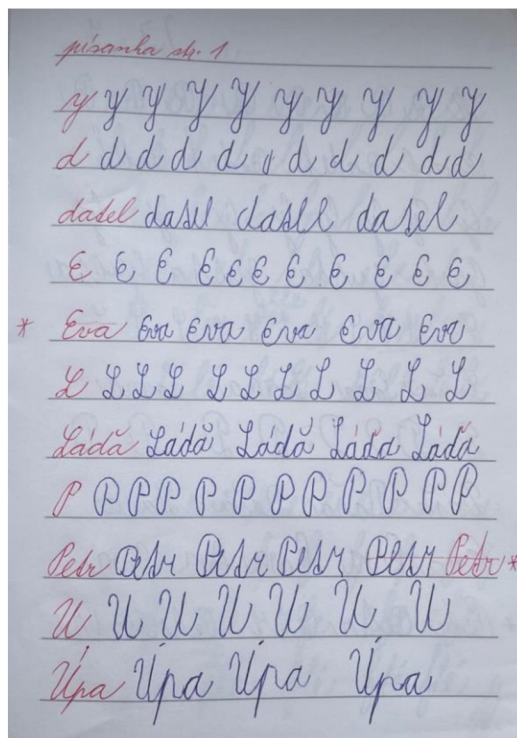 písanka str. 1
y y y y y y y y y y
d d d d d d d d d d
datel datel datel datel
E E E E E E E E E E
* Eva Eva Eva Eva Eva Eva
L L L L L L L L L L
Láďa Láďa Láďa Láďa Láďa
P P P P P P P P P P P P
Petr Petr Petr Petr Petr Petr *
U U U U U U U
Úpa Úpa Úpa Úpa